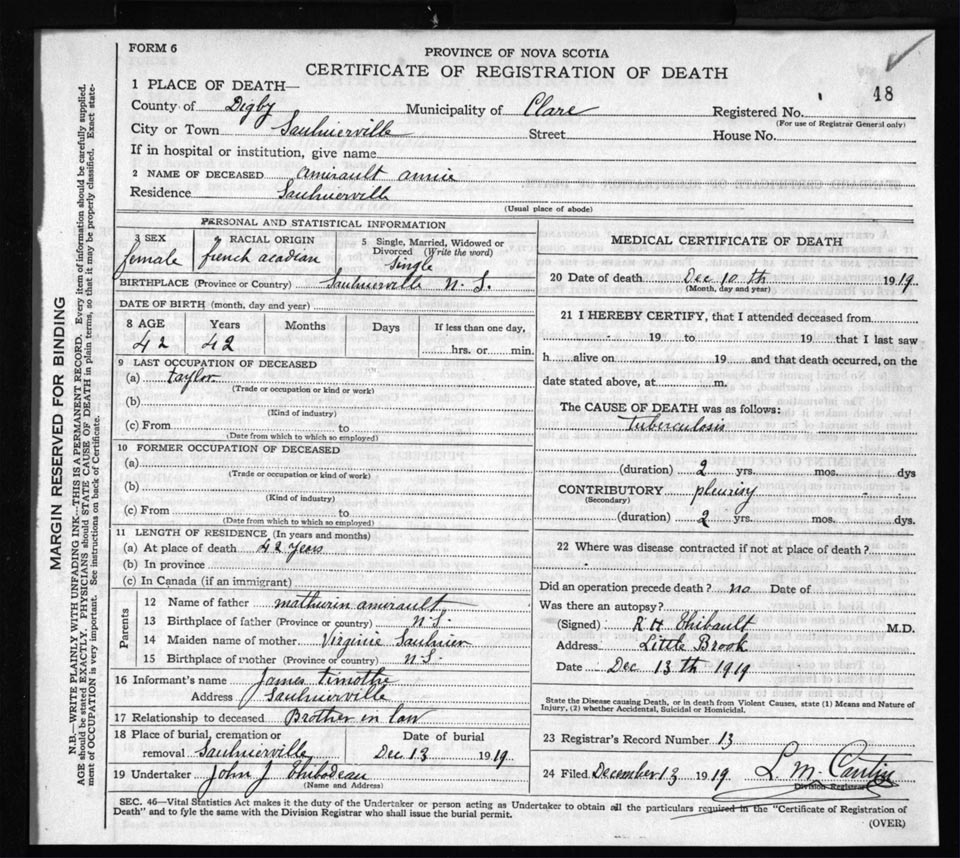 FORM 6
PROVINCE OF NOVA SCOTIA
CERTIFICATE OF REGISTRATION OF DEATH
48
1 PLACE OF DEATH—
County of Digby Municipality of Clare Registered No.
(For use of Registrar General only)
City or Town Saulnierville Street House No.
If in hospital or institution, give name
2 NAME OF DECEASED amirault annie
Residence Saulnierville
(Usual place of abode)
PERSONAL AND STATISTICAL INFORMATION
3 SEX
female
RACIAL ORIGIN
french acadian
5 Single, Married, Widowed or
Divorced (Write the word)
single
BIRTHPLACE (Province or Country) Saulnierville N. S.
DATE OF BIRTH (month, day and year)
8 AGE Years Months Days If less than one day,
42 42 hrs. or min.
9 LAST OCCUPATION OF DECEASED
(a) taylor
(Trade or occupation or kind or work)
(b)
(Kind of industry)
(c) From to
(Date from which to which so employed)
10 FORMER OCCUPATION OF DECEASED
(a)
(Trade or occupation or kind of work)
(b)
(Kind of industry)
(c) From to
(Date from which to which so employed)
11 LENGTH OF RESIDENCE (In years and months)
(a) At place of death 42 years
(b) In province
(c) In Canada (if an immigrant)
Parents
12 Name of father mathurin amirault
13 Birthplace of father (Province or country) N.S.
14 Maiden name of mother Virginie Saulnier
15 Birthplace of mother (Province or country) N.S.
16 Informant's name James Timothe
Address Saulnierville
17 Relationship to deceased Brother in law
18 Place of burial, cremation or Date of burial
removal Saulnierville Dec 13 1919
19 Undertaker John J Thibodeau
(Name and Address)
MEDICAL CERTIFICATE OF DEATH
20 Date of death Dec 10 th 1919
(Month, day and year)
21 I HEREBY CERTIFY, that I attended deceased from
19 to 19 that I last saw
h alive on 19 and that death occurred, on the
date stated above, at m.
The CAUSE OF DEATH was as follows:
Tuberculosis
(duration) 2 yrs. mos. dys
CONTRIBUTORY pleurisy
(Secondary)
(duration) 2 yrs. mos. dys.
22 Where was disease contracted if not at place of death?
Did an operation precede death? no Date of
Was there an autopsy?
(Signed) R H Thibault M.D.
Address Little Brook
Date Dec 13th 1919
State the Disease causing Death, or in death from Violent Causes, state (1) Means and Nature of
Injury, (2) whether Accidental, Suicidal or Homicidal.
23 Registrar's Record Number 13
24 Filed December 13 1919 L. M.
Division Registrar
SEC. 46—Vital Statistics Act makes it the duty of the Undertaker or person acting as Undertaker to obtain all the particulars required in the "Certificate of Registration of
Death" and to fyle the same with the Division Registrar who shall issue the burial permit.
(OVER)
MARGIN RESERVED FOR BINDING
N.B.—WRITE PLAINLY WITH UNFADING INK—THIS IS A PERMANENT RECORD. Every item of information should be carefully supplied.
AGE should be stated EXACTLY. PHYSICIANS should STATE CAUSE OF DEATH in plain terms, so that it may be properly classified. Exact state-
ment of OCCUPATION is very important. See instructions on back of Certificate.